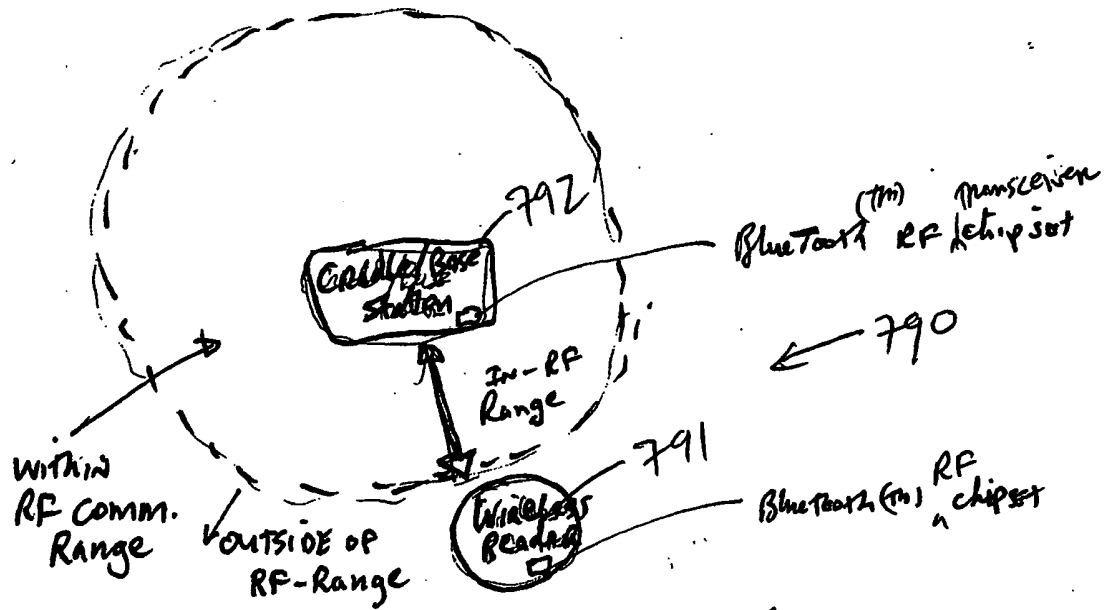 792
Cradle/Base
Station
BlueTooth (TM) RF Transceiver chipset
790
In-RF
Range
within
RF Comm.
Range
outside of
RF-Range
791
Wireless
BlueTooth (TM) RF chipset